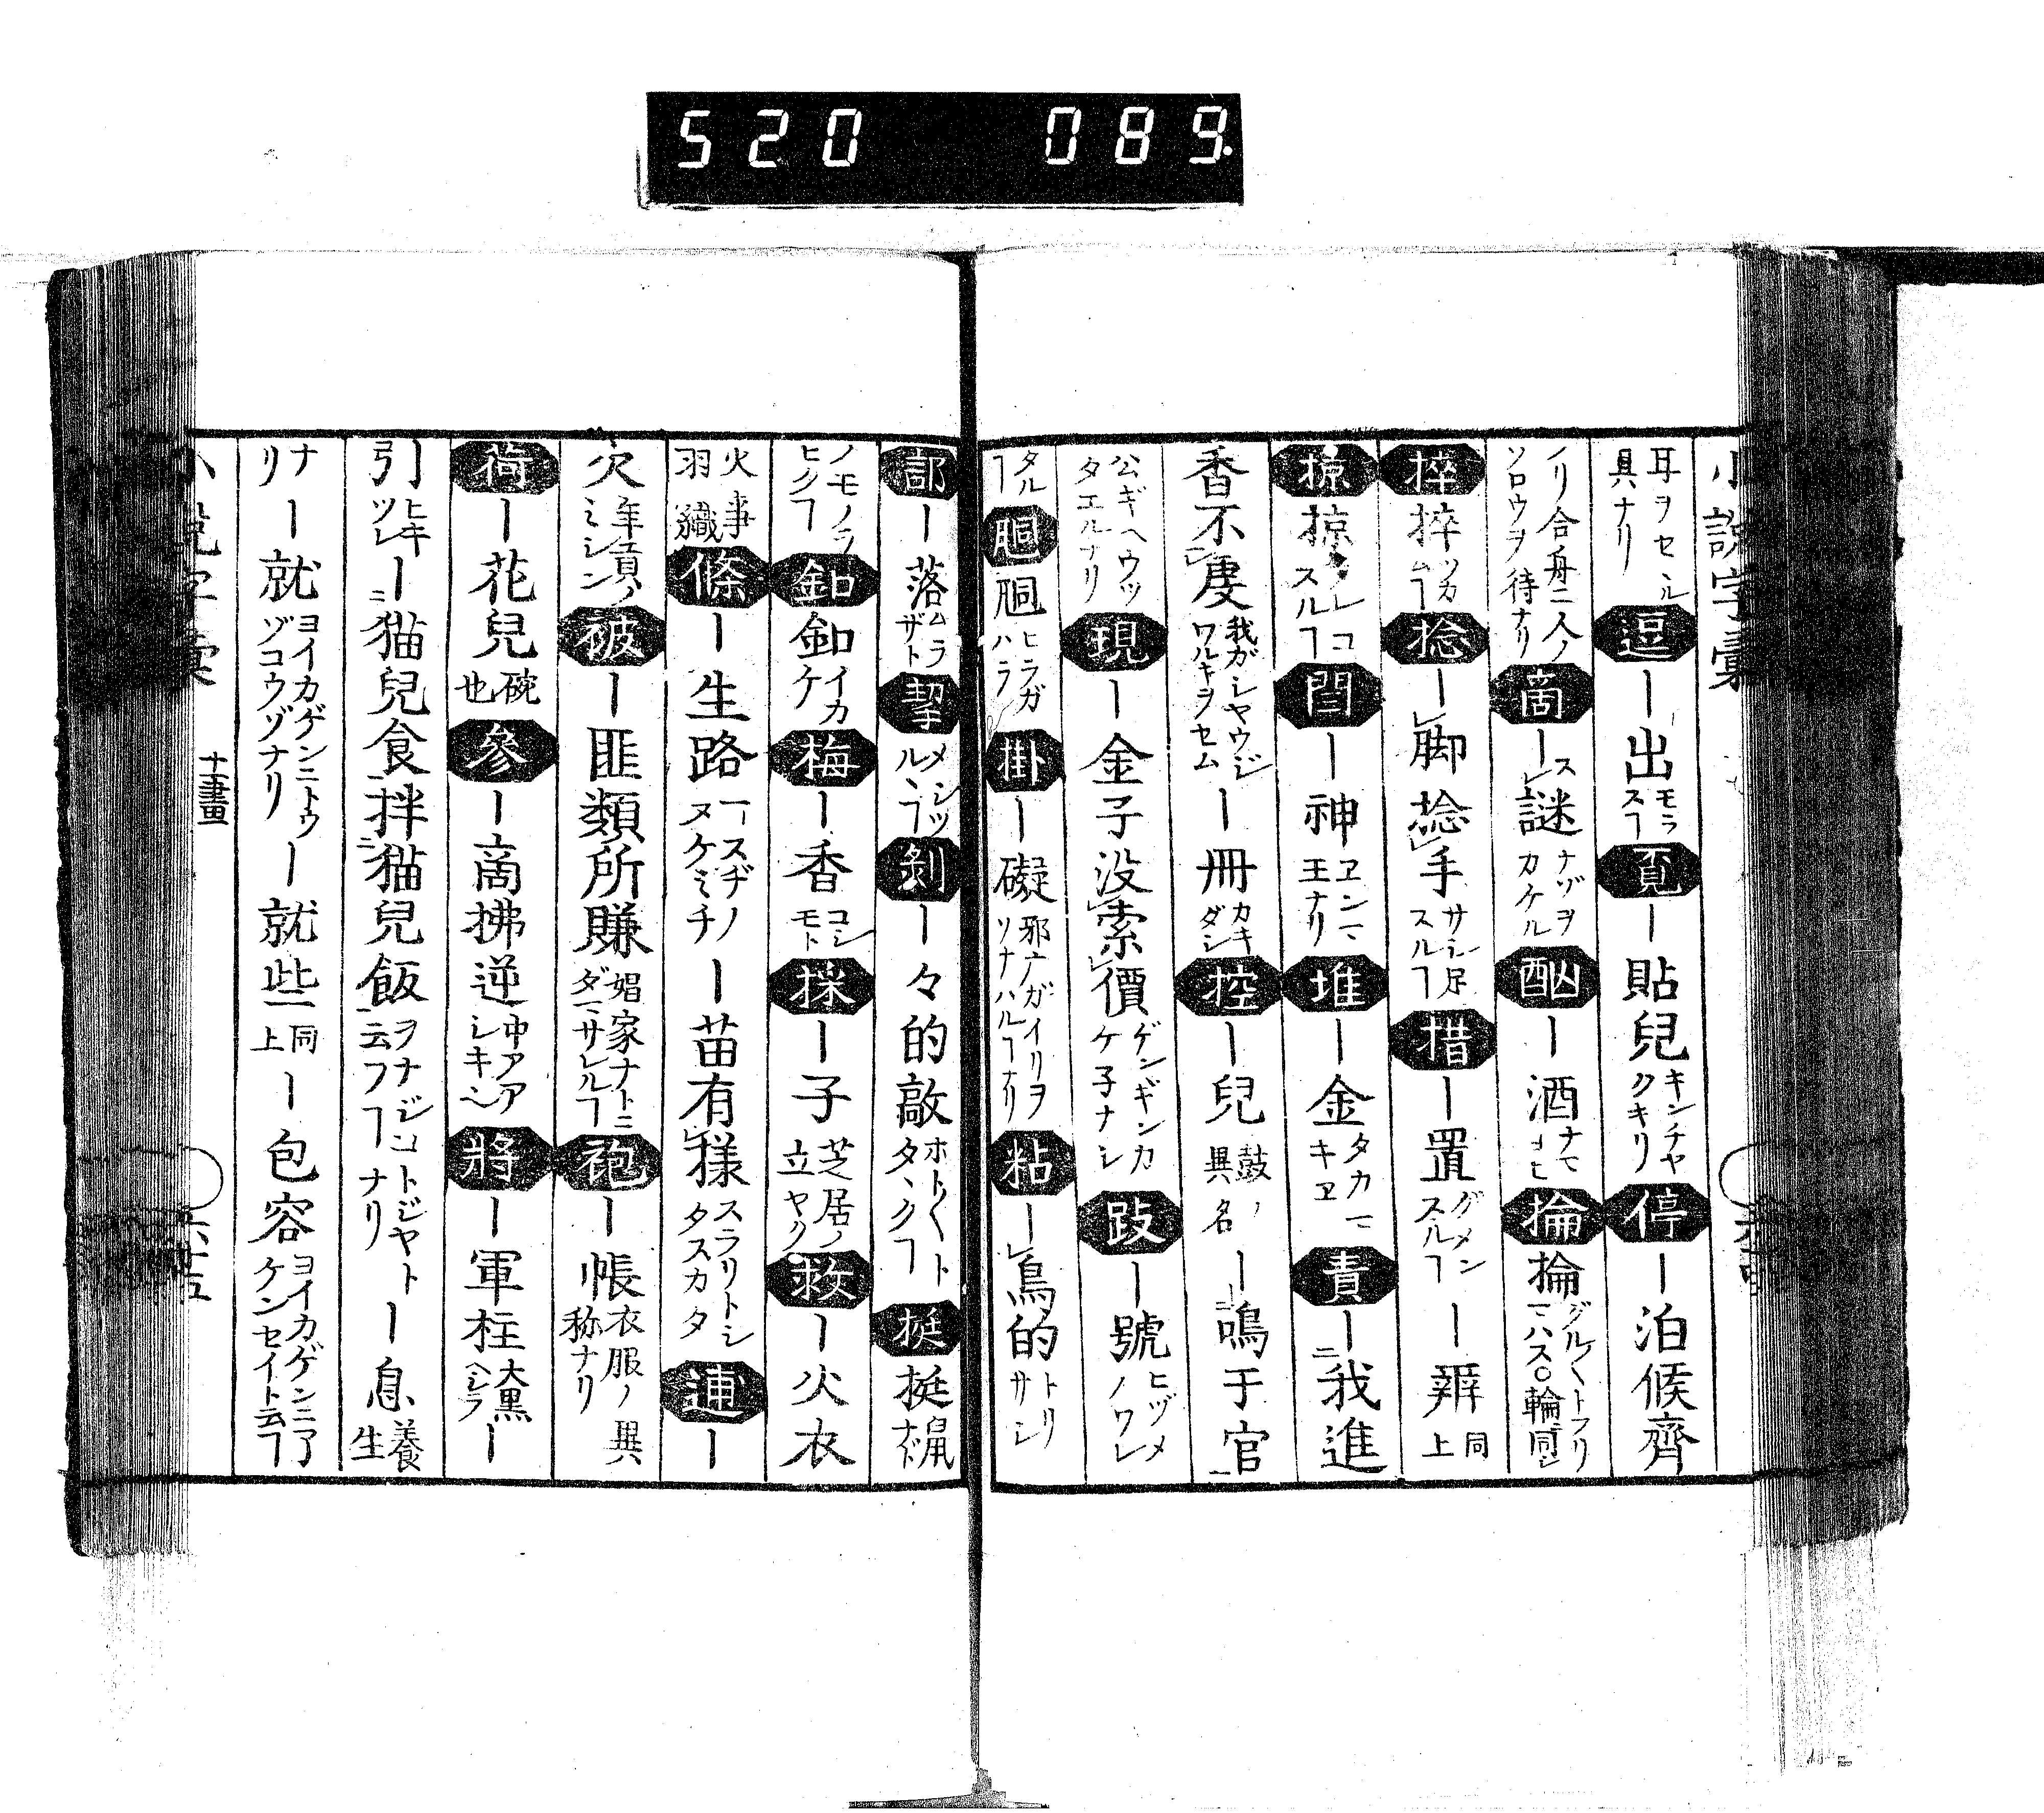 520 089.
小説字彙
耳ヲセル具ナリ 逗 ー出 モラスヿ 覔 ー貼兒 キンチヤクキリ 停 ー泊候齊
ノリ合舟ニ人ノソロウヲ待ナリ 啇 ー謎 ナゾヲカケル 酗 ー酒 掄 掄 グル〱トフリマハス○輪同シ
捽 捽 ツカムヿ 捻 ー脚捻手 サシ足スルヿ 措 ー置 グメンスルヿ ー辦 同上
掠 掠 スルヿ 閆 ー神 ヱンマ王ナリ 堆 ー金 責 ー我進
香不虔 我ガシヤウジワルキヲセム ー冊 カキダシ 控 ー兒 鼓ノ異名 ー鳴于官
公ギヘウツタエルナリ 現 ー金子没索價 ゲンギンカケ子ナシ 跂 ー號 ヒヅメノワレ
タルヿ 胴 胴 ヒラガハラ 掛 ー礙 邪ナガイリヲソナハルヿナリ 粘 ー鳥的 トリサシ
部 ー落 ムラザト 挈 剝 ー々的敲 ホト〱トタヽクヿ 挺 挺
ノモノヲヒクヿ 釦 釦 梅 ー香 コシモト 採 ー子 芝居ノ立ヤク 救 ー火衣
火事羽織 條 ー生路 一スヂノヌケミチ ー苗有様 スラリトシタスカタ 連 ー
欠 年貢ノミシン 被 ー匪類所賺 娼家ナトニダマサレルヿ 袍 ー帳 衣服ノ異称ナリ
荷 ー花兒 碗也 參 ー啇拂逆 將 ー軍柱 大黒ハシラ ー
引 ヒキツレ ー猫兒食拌猫兒飯 ヲナジコトジヤト云フヿナリ ー息 養生
ナリ ー就 ヨイカゲンニトウゾコウゾナリ ー就些 同上 ー包容 ヨイカゲンニアケンセイト云フヿ
十一畫